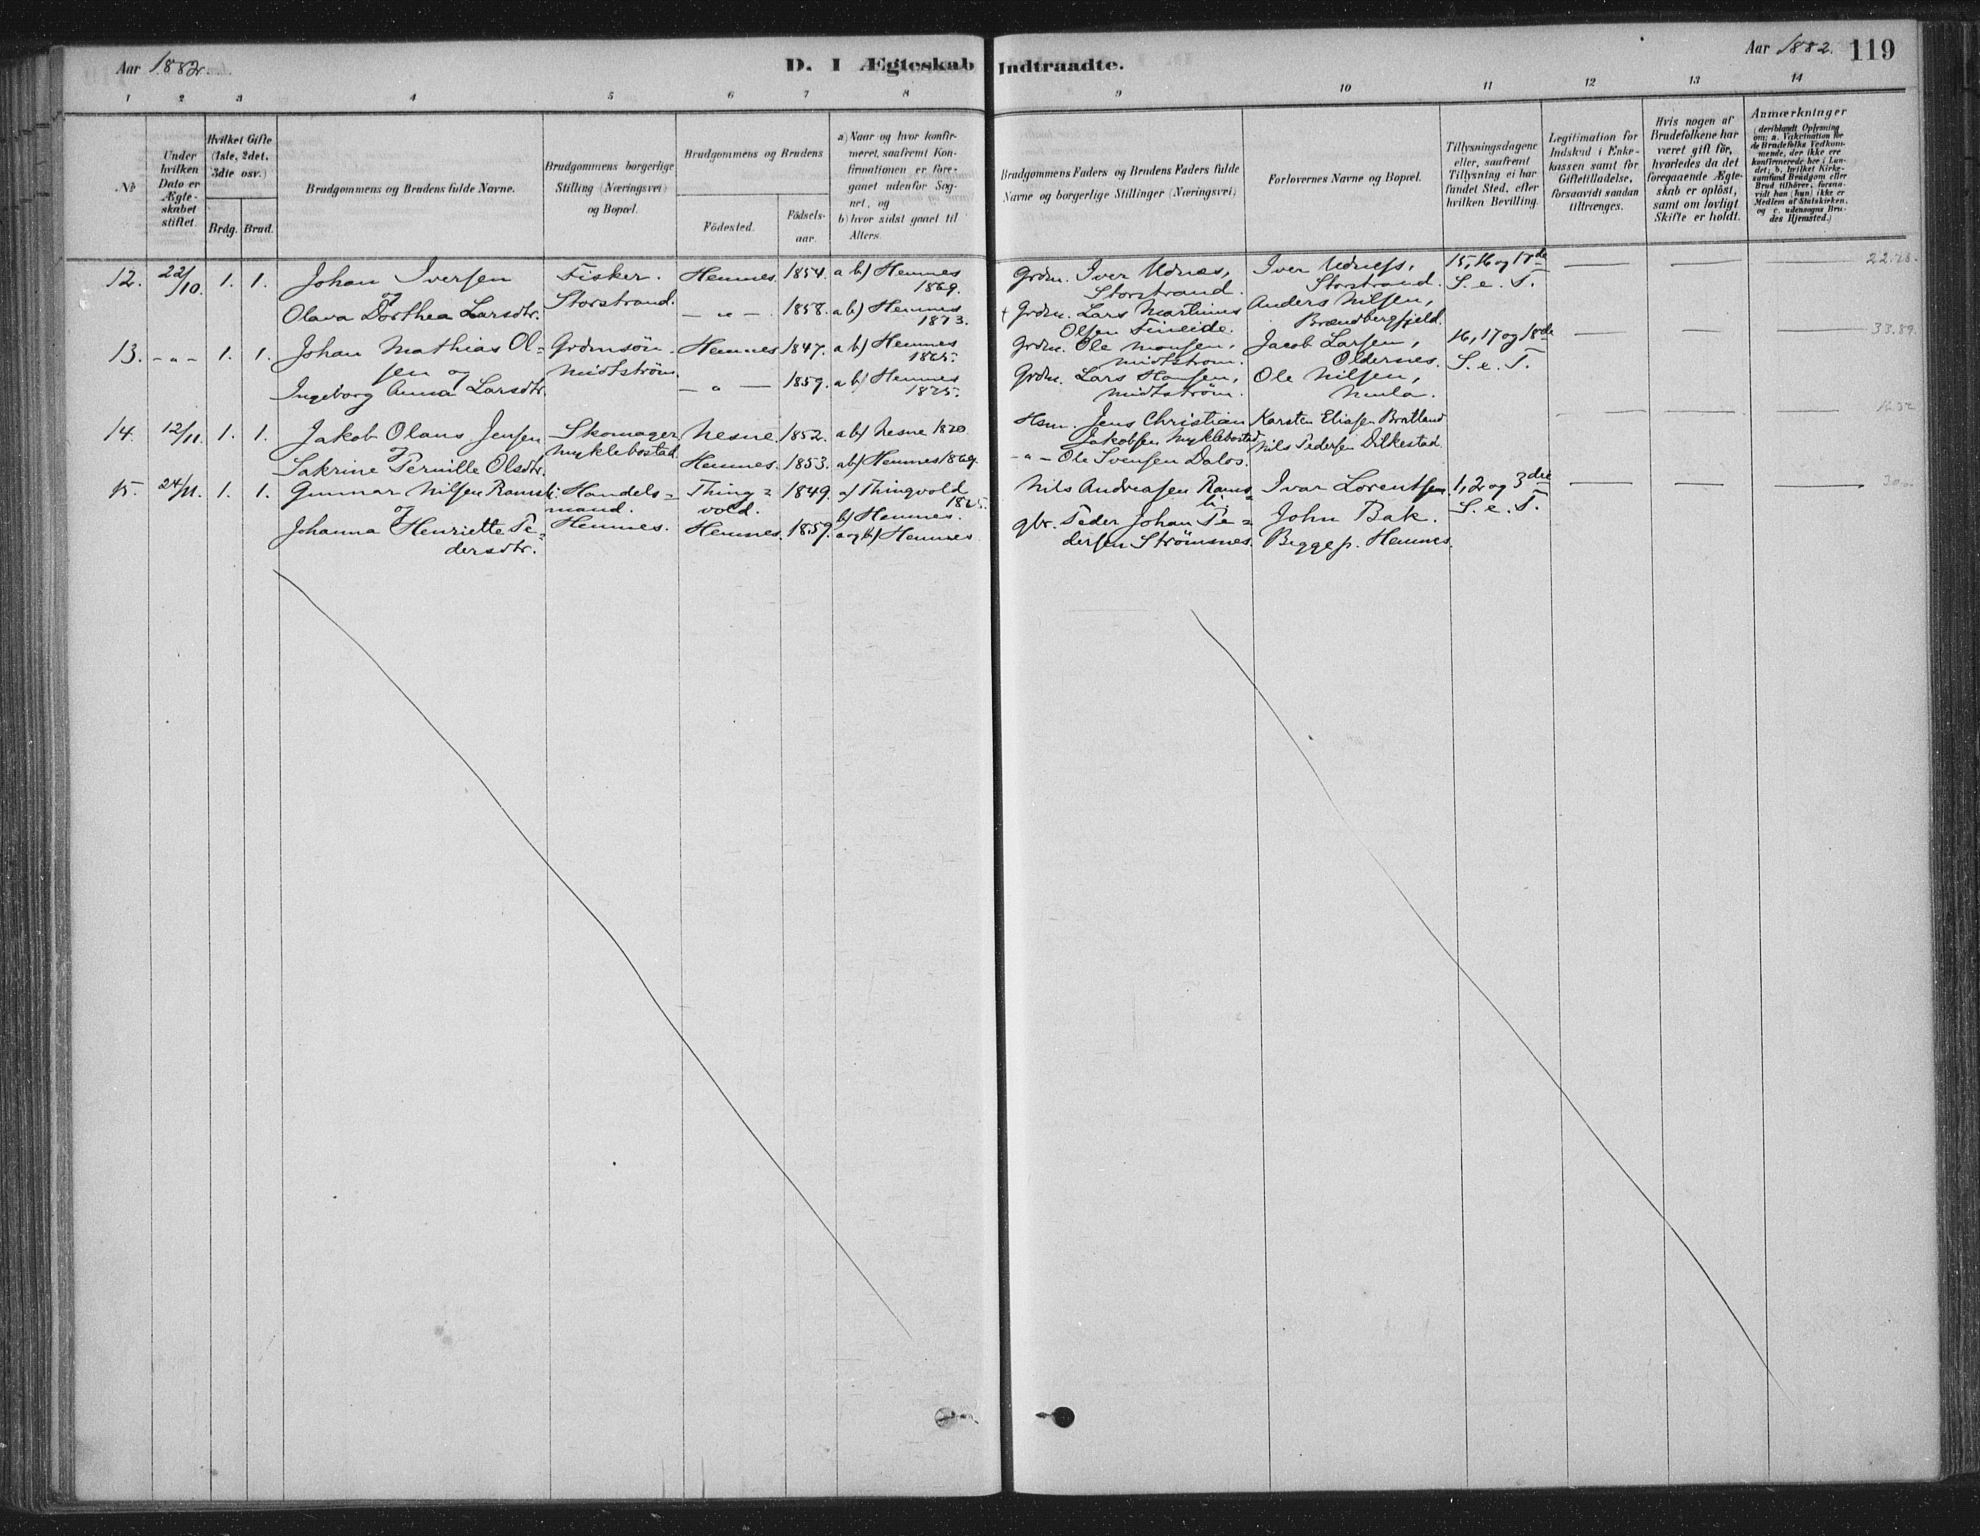 Aar 1882.
D. I Ægteskab Indtraadte.
Aar 1882. 119
1 2 3 4 5 6 7 8 9 10 11 12 13 14
No.
Under hvilken Dato er Ægteskabet stiftet.
Hvilket Gifte (1ste, 2det, 3die osv.)
Brdg. Brud.
Brudgommens og Brudens fulde Navne.
Brudgommens borgerlige Stilling (Næringsvei) og Bopæl.
Brudgommens og Brudens
Födested. Födsels-aar.
a) Naar og hvor konfirmeret, saafremt Konfirmationen er foregaaet udenfor Sognet, og
b) hvor sidst gaaet til Alters.
Brudgommens Faders og Brudens Faders fulde Navne og borgerlige Stillinger (Næringsvei)
Forlovernes Navne og Bopæl.
Tillysningsdagene eller, saafremt Tillysning ei har fundet Sted, efter hvilken Bevilling.
Legitimation for Indskud i Enkekassen samt for Giftetilladelse, forsaavidt saadan tiltrænges.
Hvis nogen af Brudefolkene har været gift för, hvorledes da det foregaaende Ægteskab er oplöst, samt om lovligt Skifte er holdt.
Anmærkninger
(deriblandt Oplysning om: a. Vakcination for de Brudefolks Vedkommende, der ikke ere konfirmerede her i Landet; b. hvilket Kirkesamfund Brudgom eller Brud tilhörer, forsaavidt han (hun) ikke er Medlem af Statskirken, og c. udensogns Brudes Hjemsted.)
12. 22/10. 1. 1. Johan Iversen Fisker. Hemnes. 1854. a b) Hemnes 1869. Grdm. Iver Udnæs, Storstrand. Iver Udness, Storstrand. 15, 16 og 17de S. e. T. 22.
og
Olava Dorthea Larsdtr. Storstrand. — „ — 1858. a b) Hemnes 1873. + Grdm. Lars Martinus Olsen Fineide. Anders Nilsen, Brændbergfjeld.
13. – „ – 1. 1. Johan Mathias Olsen og Grdmsön Midtström. Hemnes 1847. a b) Hemnes 1865. Grdm. Ole Monsen, Midtström. Jacob Larsen, Oldernes. 16, 17 og 18de S. e. T. 33.89.
Ingeborg Anna Larsdtr. — „ — 1859. a b) Hemnes 1875. Grdm. Lars Hansen, Midtström. Ole Nilsen,
14. 12/11. 1. 1. Jakob Olaus Jensen Skomager Myklebostad Nesne 1852. a b) Nesne 1870 Hsm. Jens Christian Jakobsen Myklebostad Karsten Eliassen Bratland
Sakrine Pernille Olsdtr. Hemnes. 1853. a b) Hemnes 1869. – „ – Ole Svensen Dalos. Nils Pedersen Dilkestad
15. 24/11. 1. 1. Gunnar Nilsen Ramsli Handelsmand. Hemnes. Thingvold. 1849. a) Thingvold 1865. b) Hemnes. Nils Andreasen Ramsli Ivar Lorentsen 1, 2 og 3die S. e. T. 30.
og
Johanna Henriette Pedersdtr. Hemnes. 1859. a og b) Hemnes gbr. Peder Johan Pedersen Strömsnes. John Bak. Begge p. Hemnes.